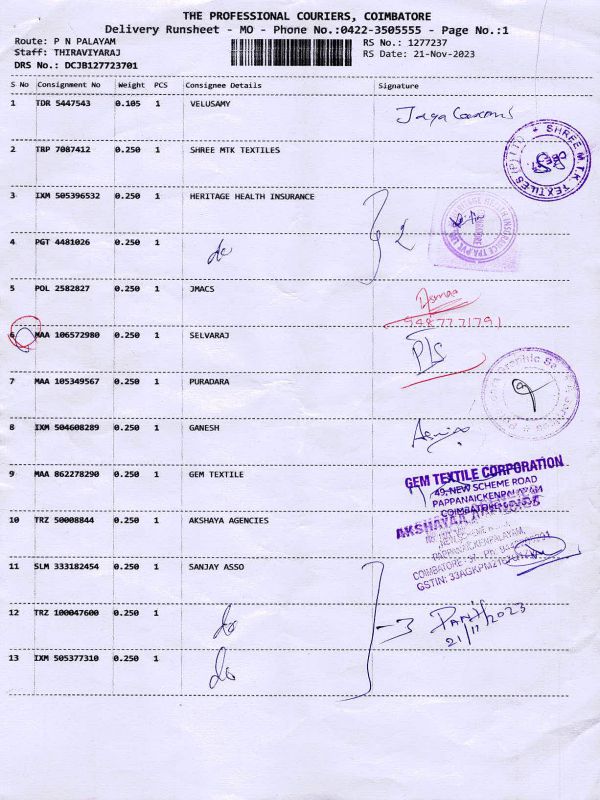 THE PROFESSIONAL COURIERS, COIMBATORE
Delivery Runsheet - MO - Phone No.:0422-3505555 - Page No.:1
Route: P N PALAYAM RS No.: 1277237
Staff: THIRAVIYARAJ RS Date: 21-Nov-2023
DRS No.: DCJB127723701
S No Consignment No Weight PCS Consignee Details Signature
1 TDR 5447543 0.105 1 VELUSAMY
2 TRP 7087412 0.250 1 SHREE MTK TEXTILES
SHREE M.T.K. TEXTILES (P) LTD
3 IXM 505396532 0.250 1 HERITAGE HEALTH INSURANCE
4 PGT 4481026 0.250 1 do 2
5 POL 2582827 0.250 1 JMACS
9487771791
6 MAA 106572980 0.250 1 SELVARAJ
7 MAA 105349567 0.250 1 PURADARA
8 IXM 504608289 0.250 1 GANESH
9 MAA 862278290 0.250 1 GEM TEXTILE
GEM TEXTILE CORPORATION
49, NEW SCHEME ROAD
PAPPANAICKENPALAYAM
10 TRZ 50008844 0.250 1 AKSHAYA AGENCIES
11 SLM 333182454 0.250 1 SANJAY ASSO
12 TRZ 100047600 0.250 1 do - 3
21/11/2023
13 IXM 505377310 0.250 1 do